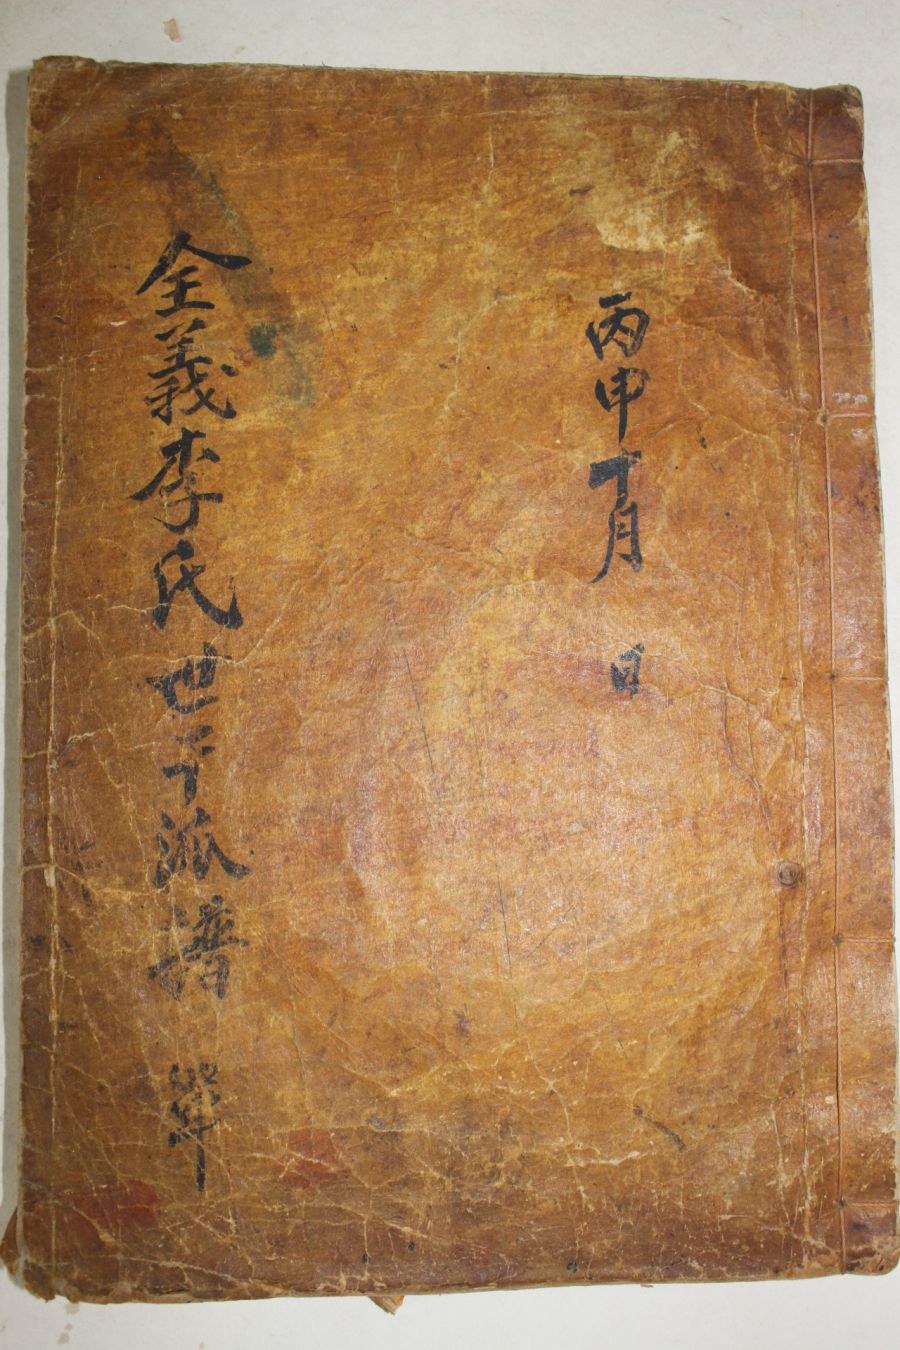 丙申十月 日
全義李氏世下派譜 單